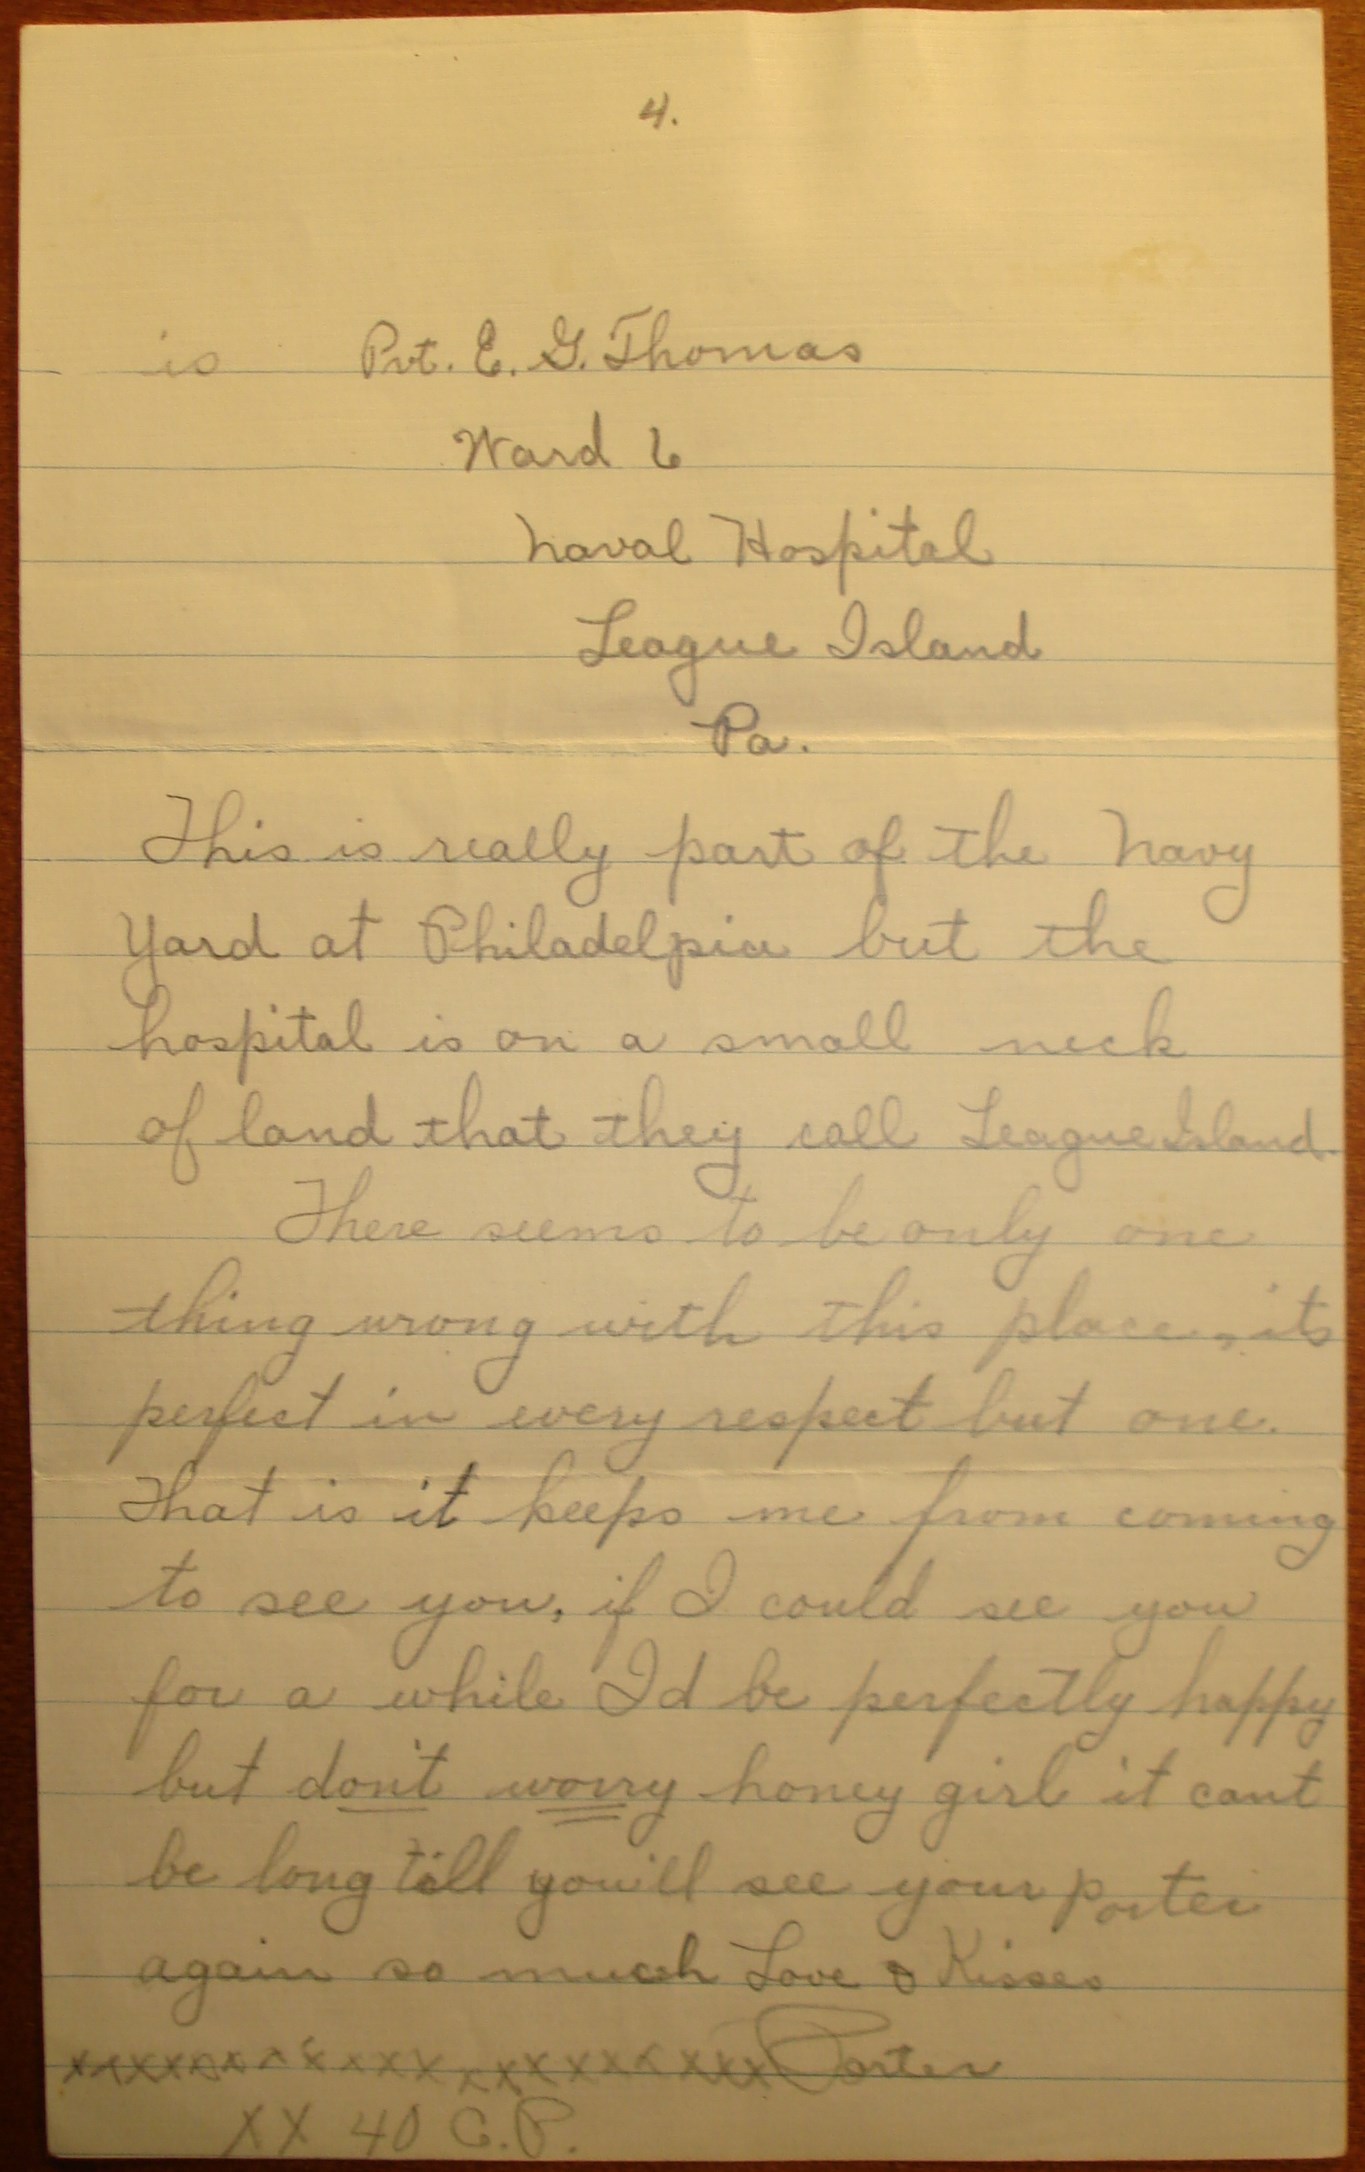 4.
is Pvt. E. G. Thomas
Ward 6
Naval Hospital
League Island
Pa.
This is really part of the Navy
Yard at Philadelpia but the
hospital is on a small neck
of land that they call League Island.
There seems to be only one
thing wrong with this place, its
perfect in every respect but one.
That is it keeps me from coming
to see you, if I could see you
for a while I'd be perfectly happy
but don't worry honey girl it cant
be long till you'll see your Porter
again so much Love & Kisses
xxxxxxxxxxxxxxxxxxxxxx Porter
XX 40 C.P.